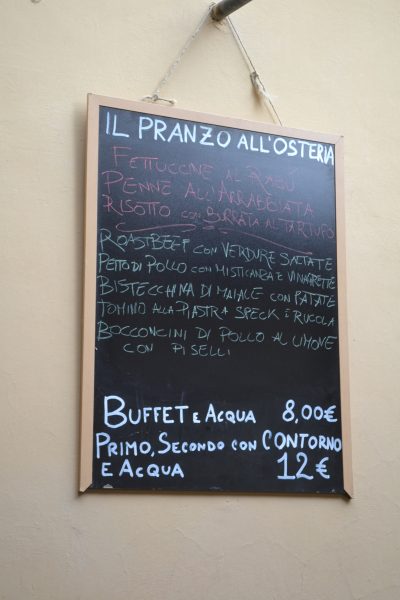 IL PRANZO ALL'OSTERIA
FETTUCCINE AL RAGÚ
PENNE ALL'ARRABBIATA
RISOTTO CON BURRATA AL TARTUFO
ROASTBEEF CON VERDURE SALTATE
PETTO DI POLLO CON MISTICANZA E VINAGRETTE
BISTECCHINA DI MAIALE CON PATATE
TOMINO ALLA PIASTRA SPECK E RUCOLA
BOCCONCINI DI POLLO AL LIMONE
CON PISELLI
BUFFET E ACQUA 8,00€
PRIMO, SECONDO CON CONTORNO
E ACQUA 12€